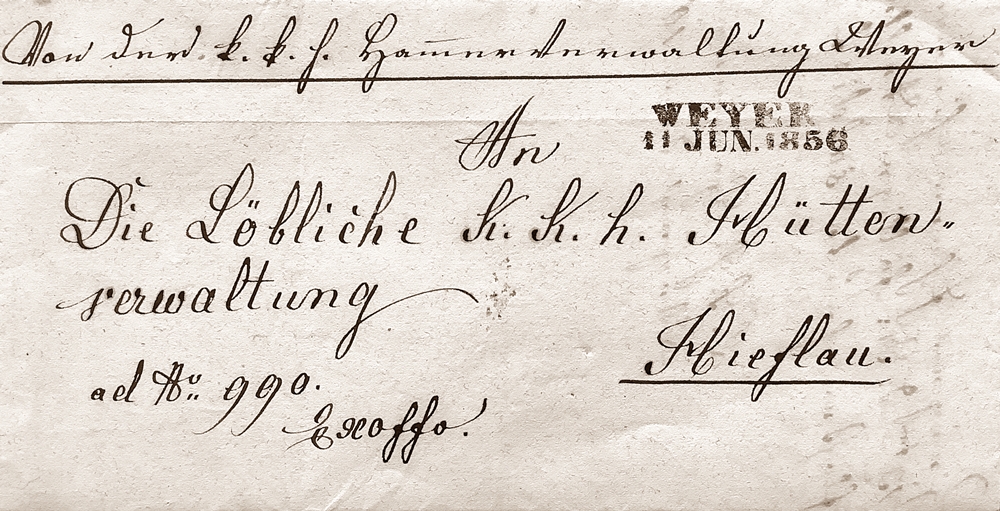 Von der k. k. h. Ham̅erverwaltung Weyer
WEYER
11 JUN. 1856
An
Die Löbliche K. K. h. Hütten-
verwaltung
Hieflau.
ad No. 990.
Exoffo.